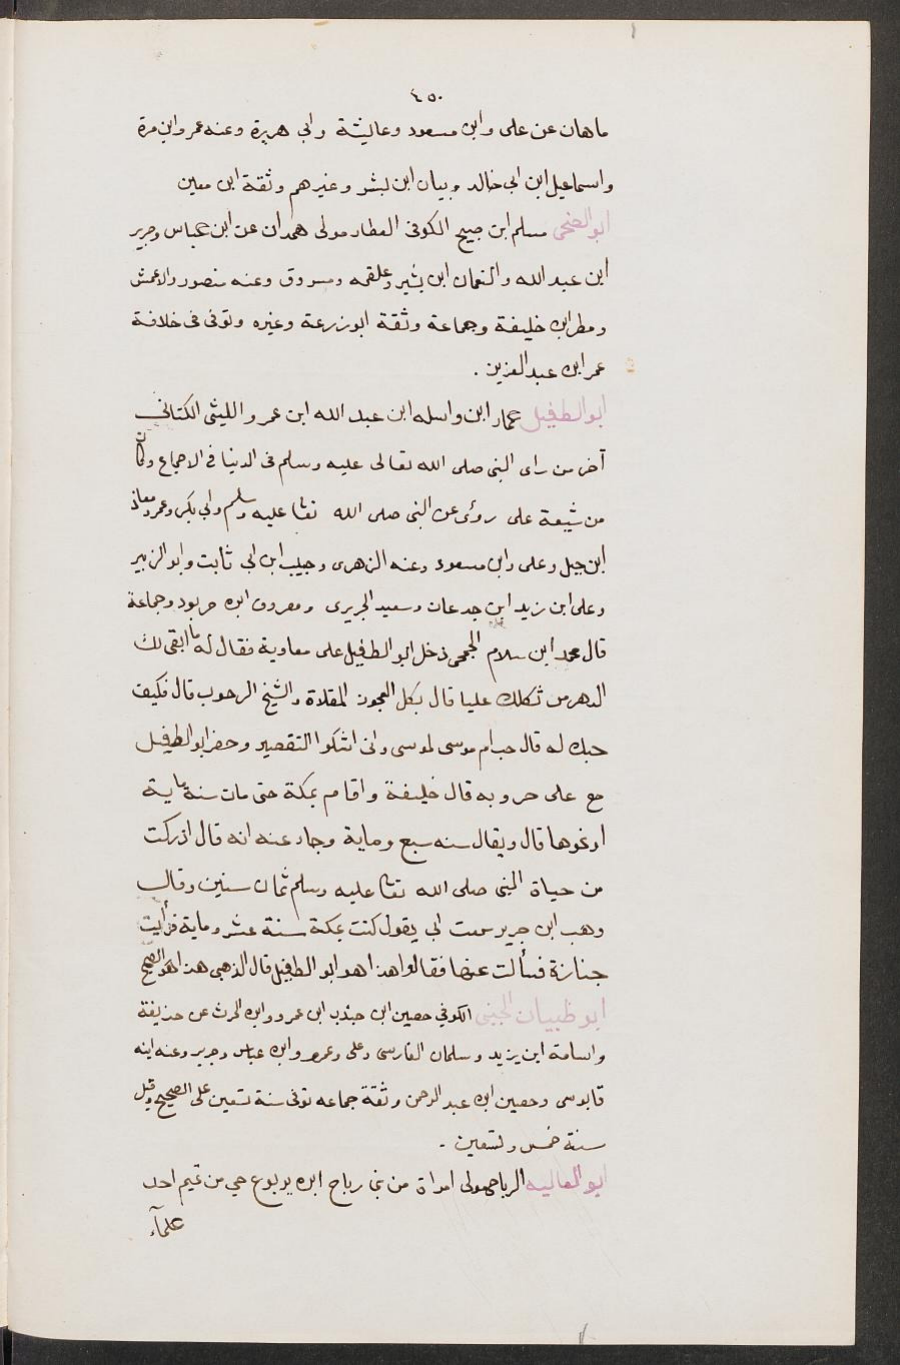 ٤٥٠
ماهان عن على وابن مسعود وعايشة وابى هريرة وعنه عمر وابن مرة
واسماعيل ابن ابى خالد وبيان ابن بشر وغيرهم وثقة ابن معين
ابو الضحى مسلم ابن صبيح الكوفى العطار مولى همدان عن ابن عباس وجرير
ابن عبد الله والنعمان ابن بشير وعلقمه ومسروق وعنه منصور والاعمش
ومطر ابن خليفة وجماعة وثقة ابو زرعة وغيره وتوفى فى خلافة
عمر ابن عبد العزيز .
ابو الطفيل عمار ابن واسله ابن عبد الله ابن عمر والليثى الكنانى
آخر من راى النبى صلى الله تعالى عليه وسلم فى الدنيا فى الاجماع وكان
من شيعة على روى عن النبى صلى الله تعا عليه وسلم وابى بكر وعمر ومعاذ
ابن جبل وعلى وابن مسعود وعنه الزهرى وحبيب ابن ابى ثابت وابو الزبير
وعلى ابن زيد ابن جدعان وسعيد الجريرى ومعروف ابن خربود وجماعة
قال محمد ابن سلام الجمحى دخل ابو الطفيل على معاوية فقال له ما ابقى لك
الدهر من ثكلك عليا قال بكل العجوز المقلاة والشيخ الرحوب قال فكيف
حبك له قال حب ام موسى لموسى وانى اشكوا التقصير وحضر ابو الطفيل
مع على حروبه قال خليفة واقام بمكة حتى مات سنة ماية
او نحوها قال ويقال سنه سبع وماية وجاء عنه انه قال ادركت
من حياة النبى صلى الله تعا عليه وسلم ثمان سنين وقال
وهب ابن جرير سمعت ابى يقول كنت بمكة سنة عشر وماية فرأيت
جنازة فسألت عنها فقالوا هذا هو ابو الطفيل قال الذهبى هذا هو الصحيح
ابو ظبيان الجنبى الكوفى حصين ابن جندب ابن عمرو وابن الحرث عن حذيفة
واسامة ابن يزيد وسلمان الفارسى وعلى وعمر وابن عباس وجرير وعنه ابنه
قابوس وحصين ابن عبد الرحمن وثقة جماعه توفى سنة تسعين على الصحيح وقيل
سنة خمس وتسعين .
ابو العاليه الرياحى مولى امراة من بنى رياح ابن يربوع حى من تميم احد
علمآء